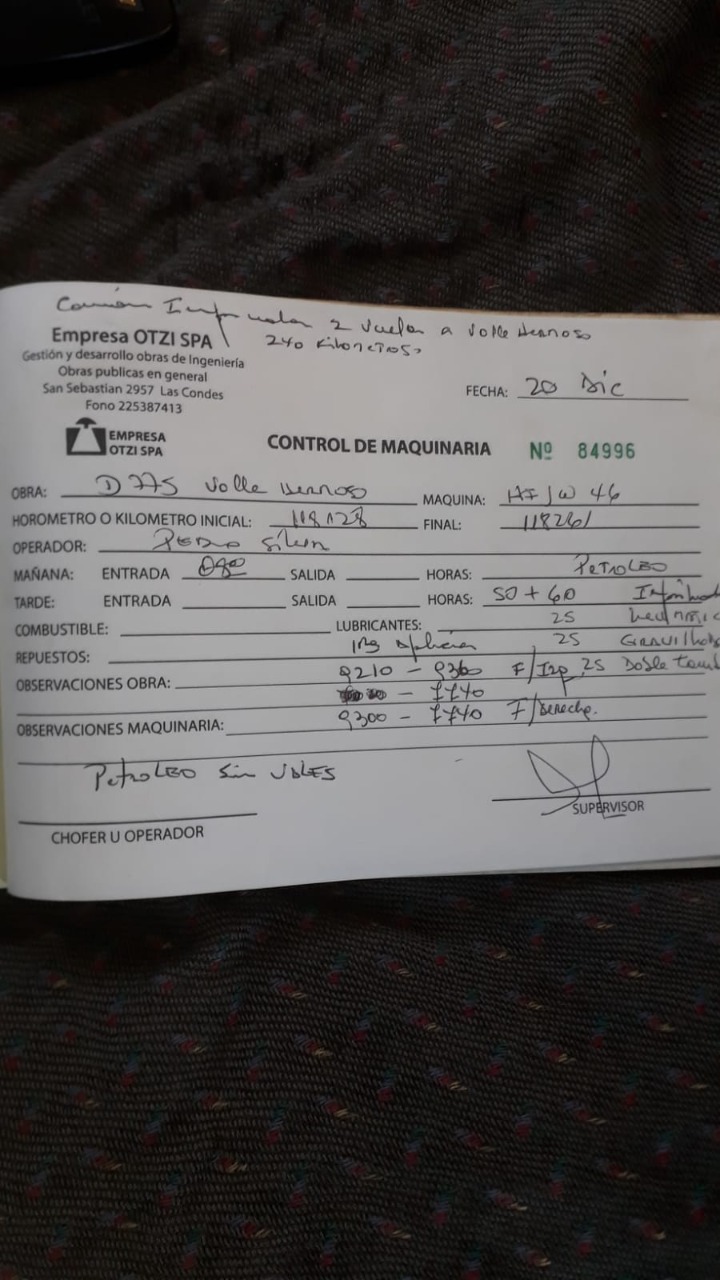 Camión 2 vueltas a Valle Hermoso
240 Kilometros
Empresa OTZI SPA
Gestión y desarrollo obras de Ingeniería
Obras publicas en general
San Sebastian 2957 Las Condes
Fono 225387413
FECHA: 20 Dic
EMPRESA
OTZI SPA
CONTROL DE MAQUINARIA Nº 84996
OBRA: D 775 Valle Hermoso MAQUINA: 46
HOROMETRO O KILOMETRO INICIAL: 118128 FINAL: 118261
OPERADOR: Pedro Silva
MAÑANA: ENTRADA SALIDA HORAS: Petroleo
TARDE: ENTRADA SALIDA HORAS: 50 + 60
COMBUSTIBLE: LUBRICANTES: 25
REPUESTOS: 25
OBSERVACIONES OBRA: 9210 - 9360 F/Izp 25 Doble
- 7740
9300 - 7740 F/Derecha.
OBSERVACIONES MAQUINARIA:
Petroleo Sin Vales
CHOFER U OPERADOR
SUPERVISOR